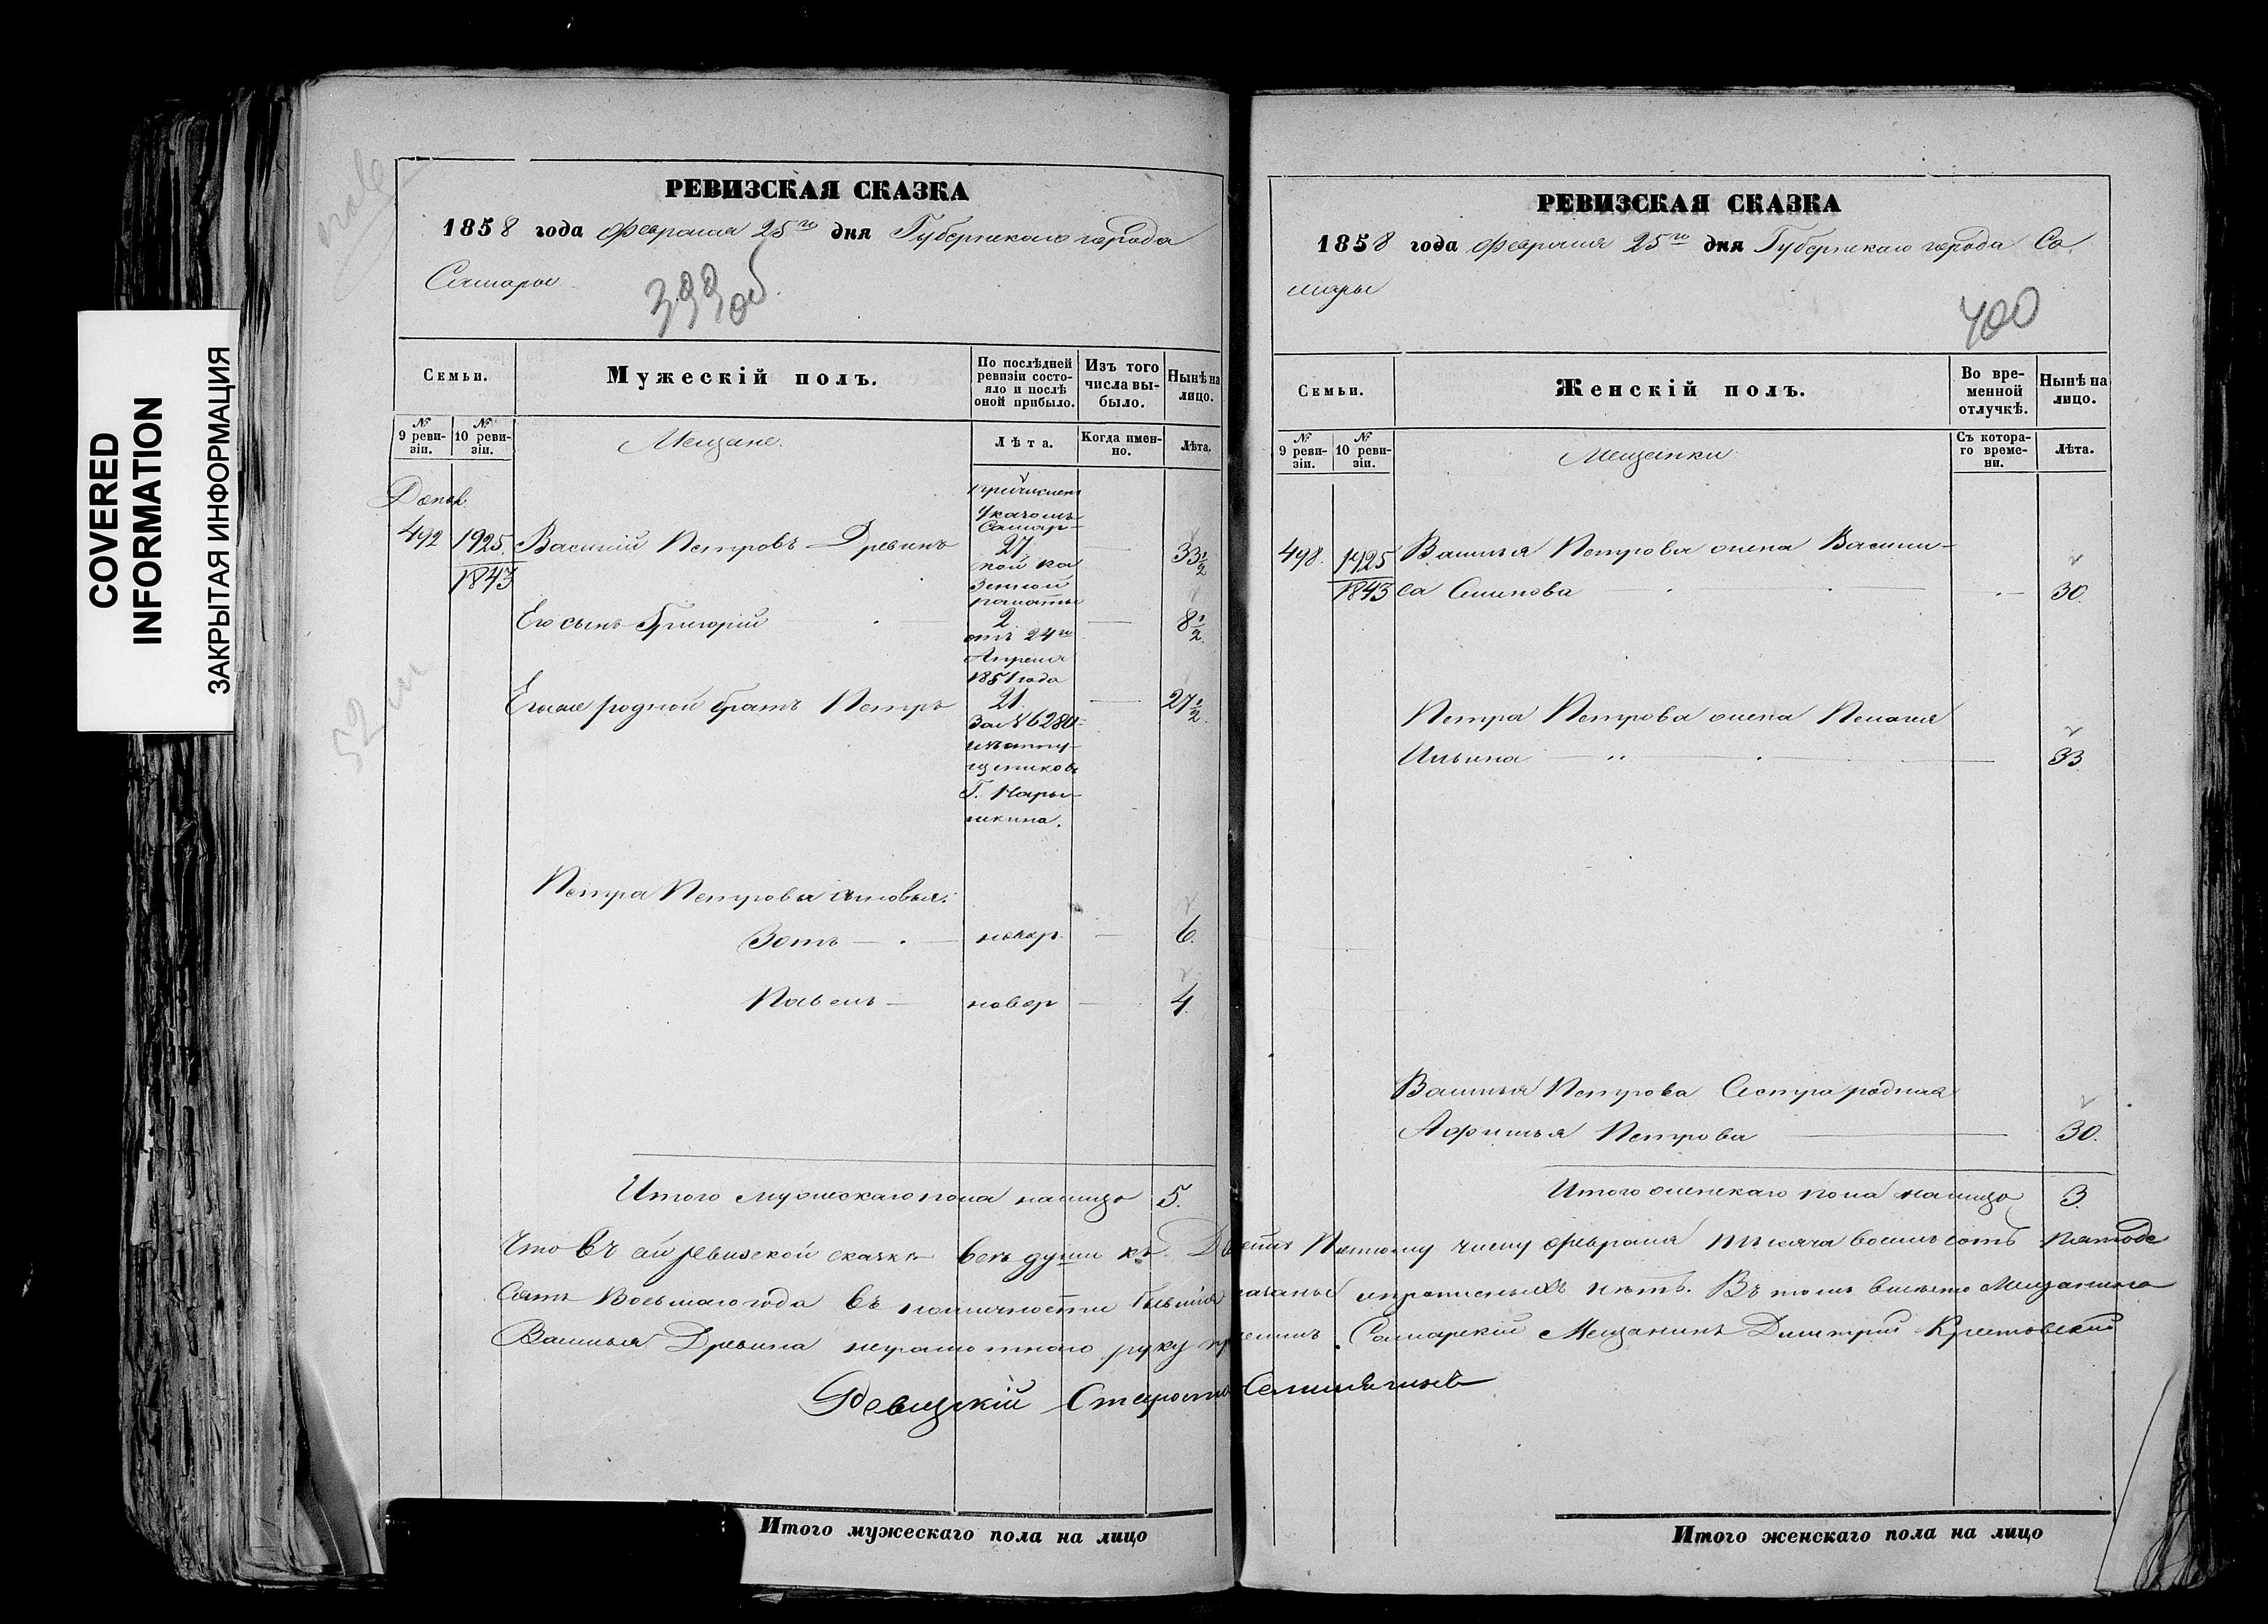 COVERED
INFORMATION
ЗАКРЫТАЯ ИНФОРМАЦИЯ
РЕВИЗСКАЯ СКАЗКА
1858 года Февраля 25го дня Губернскаго города
Самары
399 об.
Семьи.
Мужескій полъ.
По послѣдней
ревизіи состо-
яло и послѣ
оной прибыло.
Изъ того
числа вы-
было.
Нынѣ на
лицо.
№
9 реви-
зіи.
№
10 реви-
зіи.
Мещане.
Лѣта.
Когда имен-
но.
Лѣта.
причислен
Указомъ
Самар-
492 1925 Василий Петровъ Древинъ 27 33 1/2
1843
ской Ка
зенной
палаты
Его сынъ Григорий 2 8 1/2
отъ 24го
Апреля
1851 года
Его же родной братъ Петръ 21 27 1/2
За № 6280
изъ отпу-
щениковъ
Г. Нары-
шкина.
Петра Петрова сыновья:
Зотъ новор 6.
Павелъ новор 4.
Итого мужескаго пола налицо 5.
РЕВИЗСКАЯ СКАЗКА
1858 года Февраля 25го дня Губернскаго города Са
мары
400
Семьи.
Женскій полъ.
Во вре-
менной
отлучкѣ.
Нынѣ на
лицо.
№
9 реви-
зіи.
№
10 реви-
зіи.
Мещанки
Съ котора-
го време-
ни.
Лѣта.
498. 1925 Василья Петрова жена Васили-
1843 са Семенова 30.
Петра Петрова жена Пелагея
Ильина 33
Василья Петрова Сестра родная
Афимья Петрова 30.
Итого женскаго пола налицо 3.
Что в ревизской сказке все души къ Пятому числу февраля тысяча восемь сотъ
сятъ Восьмаго года въ наличности бывшия прописныхъ нѣтъ. Въ томъ вместо Мещанина
Василья Древина неграмотнаго руку Самарский Мещанинъ Дмитрий Крестовский
Староста
Итого мужескаго пола на лицо
Итого женскаго пола на лицо